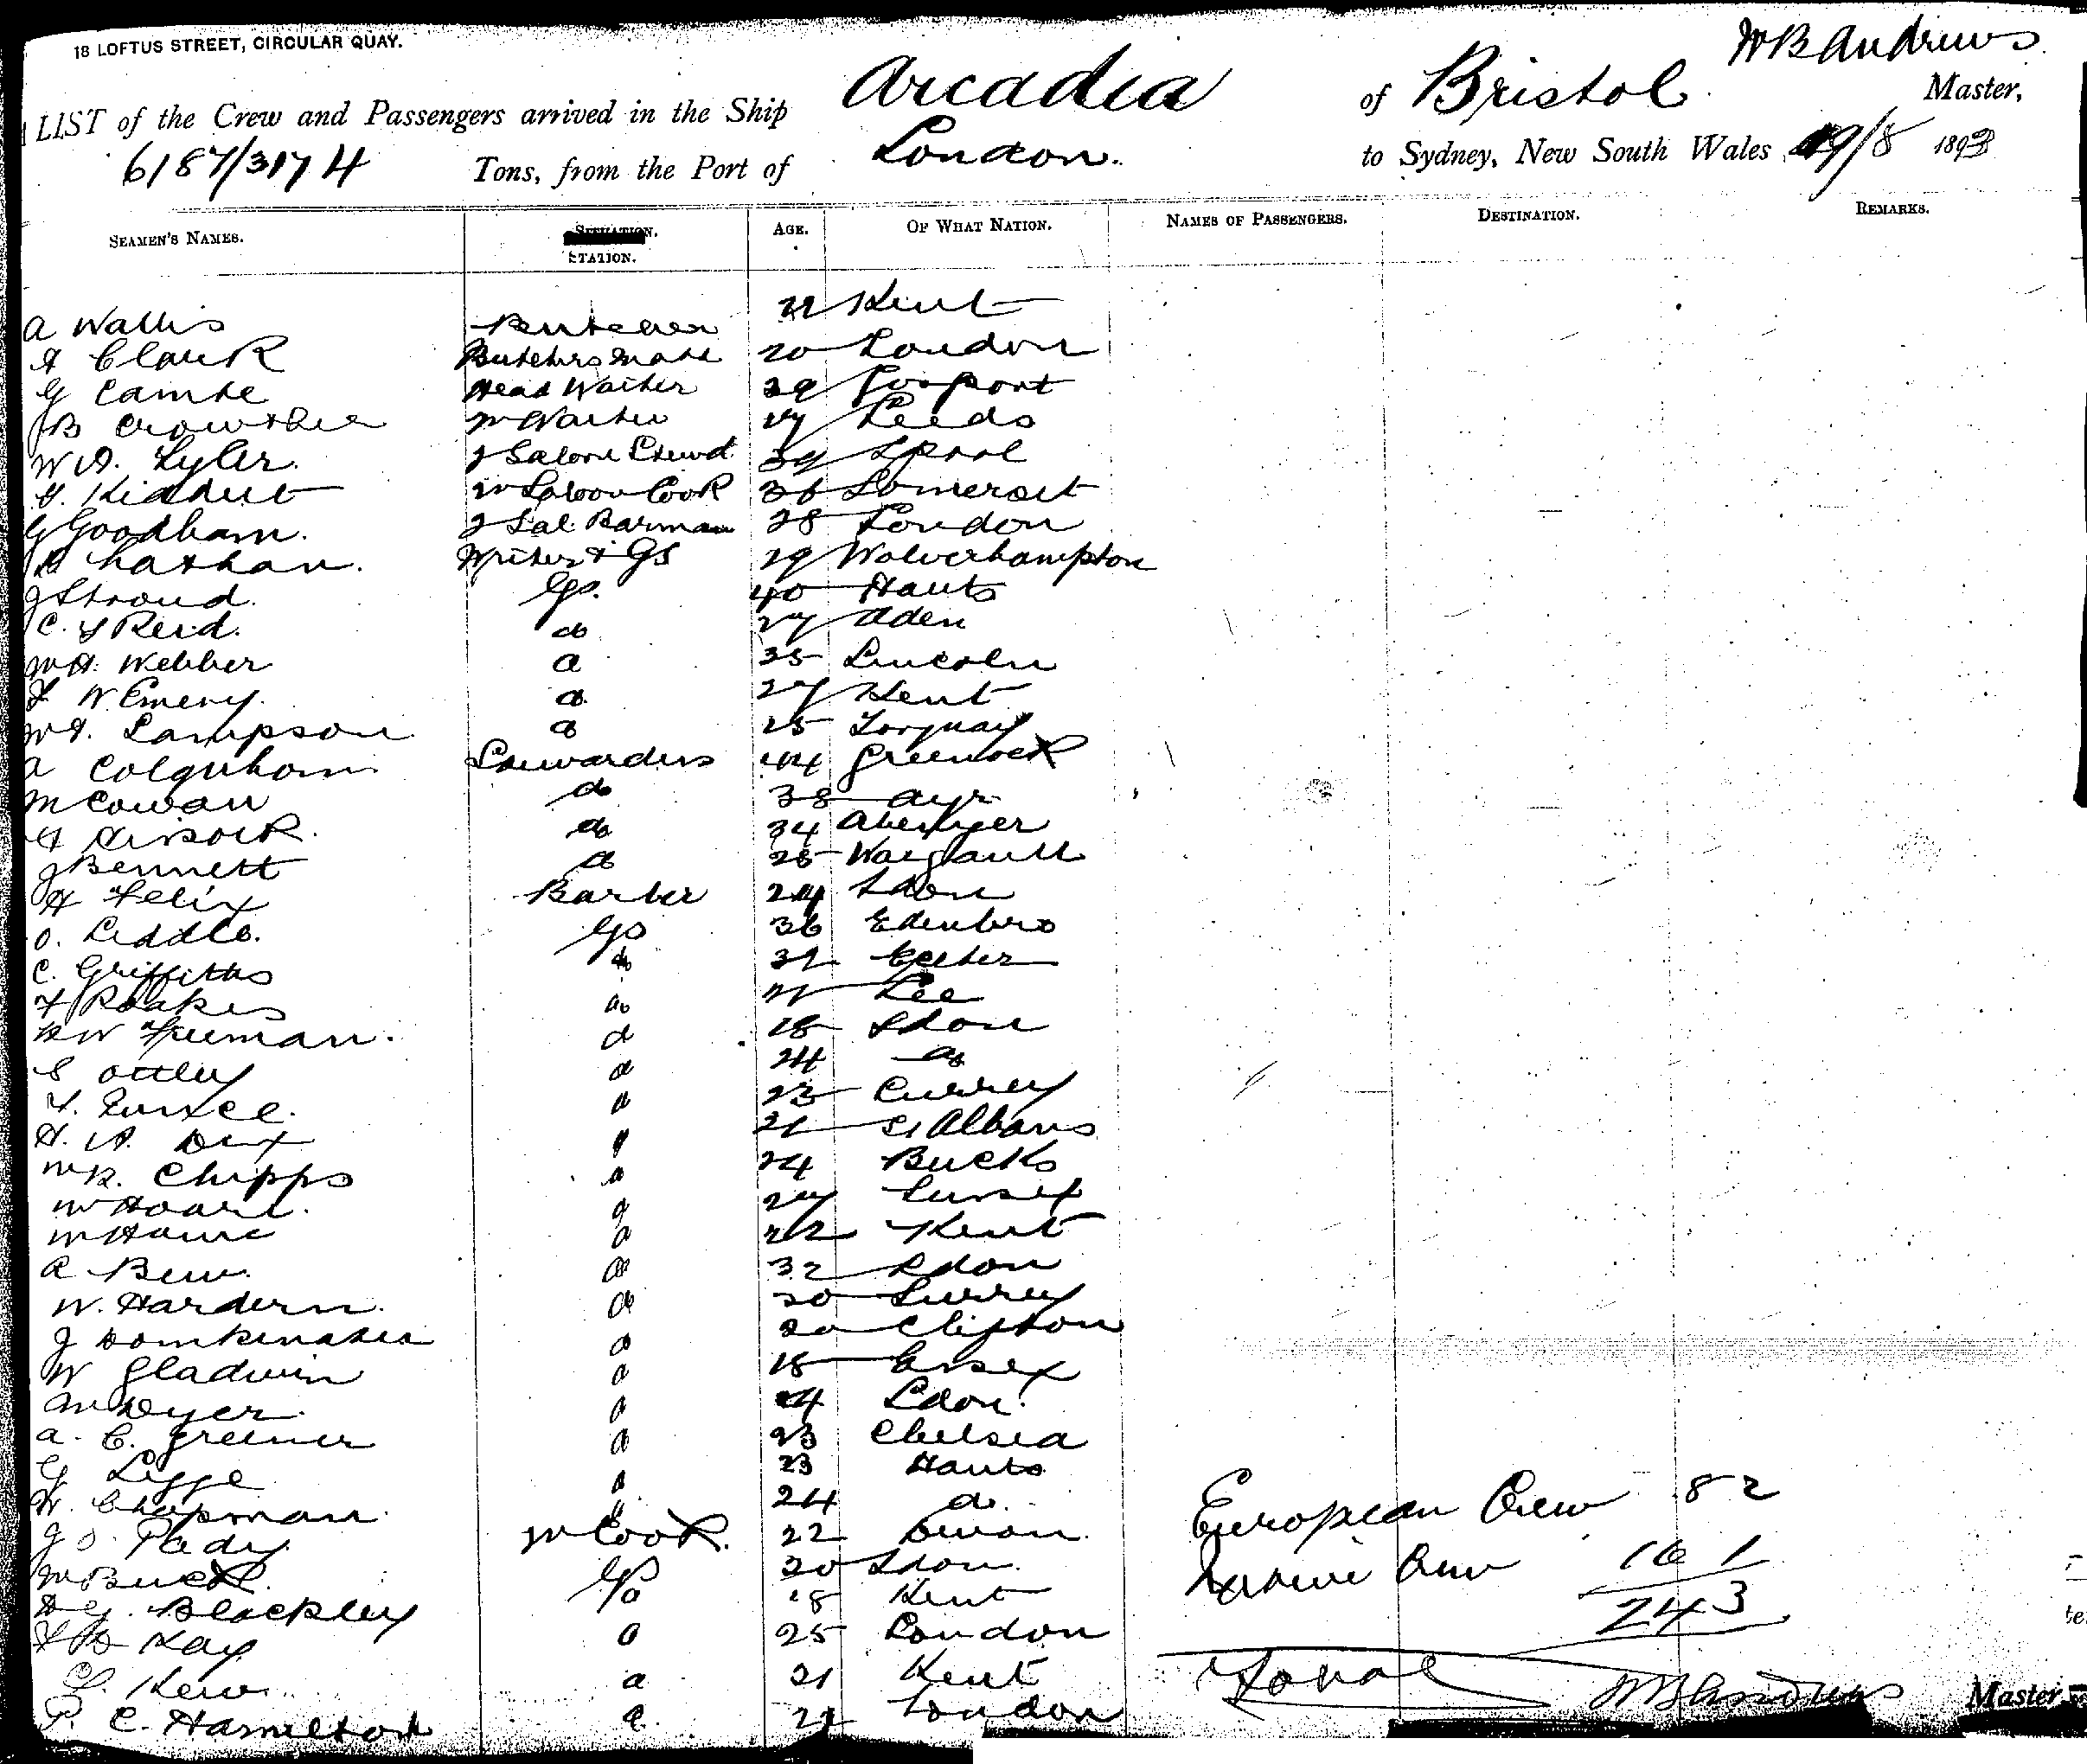 18 LOFTUS STREET, CIRCULAR QUAY.
W B Andrews
LIST of the Crew and Passengers arrived in the Ship Arcadia of Bristol Master,
6187/3174 Tons, from the Port of London. to Sydney, New South Wales 19/8 1893
SEAMEN'S NAMES. STATION. AGE. OF WHAT NATION. NAMES OF PASSENGERS. DESTINATION. REMARKS.
A Wallis Butcher Kent
A Clark Butchers Mate 20 London
G Cambe Head Waiter 29 Gosport
J B Crowther Waiter 27 Leeds
W A. Tyler. 2 Saloon Stewd 39 Lpool
Saloon Cook 36 Somerset
G Goodham. 2 Sal. Barman 28 London
Nathan. Writer & GS 29 Wolverhampton
J Stroud. GS. 40 Hants
C. F Reid. do 27 Aden
W H. Webber do 35 Lincoln
F W Emery. do 27 Kent
Lampson do 25 Torquay
A Colquhoun Stewardess 44 Greenock
M Cowan do 38 Ayr
do 34
J Bennett do 28
H Felix Barber 24 Ldon
O. Liddle. GS 36 Edinbro
C. Griffiths do
F Roakes do Lee
Freeman. d 18 Ldon
S Ottley d 24 do
d 23 Surrey
H. A. Dix d 21 St Albans
Chipps d 24 Bucks
W Hoare. d 27 Sussex
d 22 Kent
A Bew. do 32 Ldon
W. Hardern. do 20 Surrey
J do 20 Clifton
W Gladwin d 18 Essex
Dyer. d 24 Ldon.
A. C. Greener d 23 Chelsea
G Legge d 23 Hants
W. Chapman. d 24 do.
J S. Pady Cook. 22 Devon.
W Buck. GS 20 Ldon.
Blackley do 18 Kent
Kay d 25 London
Kew d 21 Kent
P. C. Hamilton d London
European Crew 82
Native Crew 161
Total 243
W B Andrews Master